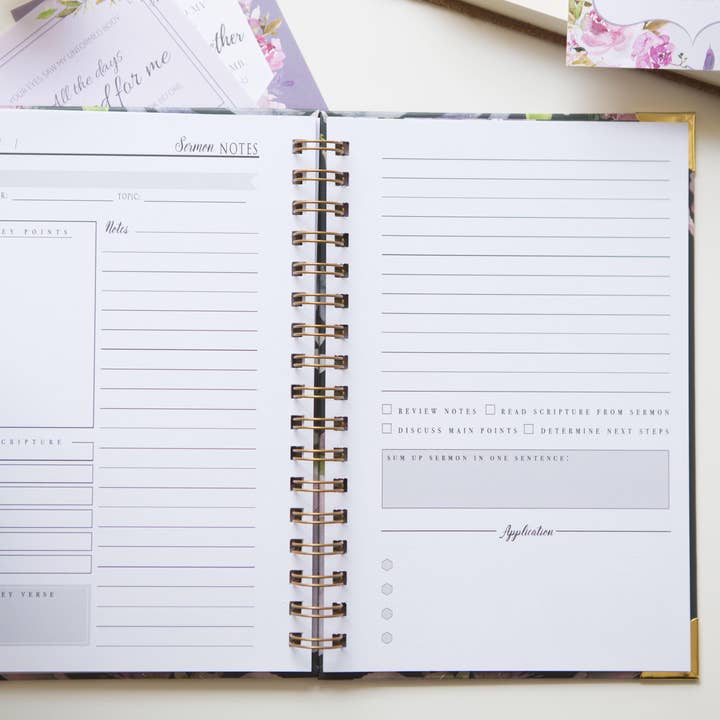 YOUR EYES SAW MY UNFORMED BODY
All the days
for me
Sermon NOTES
TOPIC:
EY POINTS
Notes
CRIPTURE
EY VERSE
REVIEW NOTES
READ SCRIPTURE FROM SERMON
DISCUSS MAIN POINTS
DETERMINE NEXT STEPS
SUM UP SERMON IN ONE SENTENCE:
Application